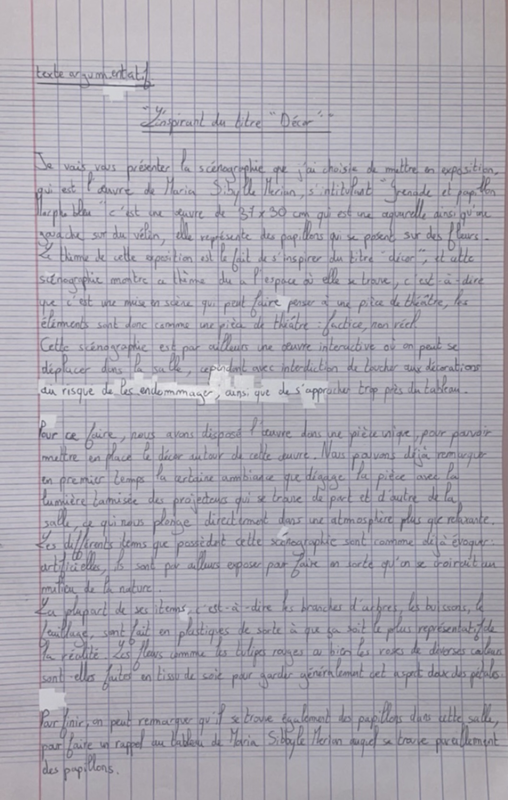 texte argumentatif
"S'inspirant du titre "Décor""
Je vais vous présenter la scénographie que j'ai choisie de mettre en exposition,
qui est l'œuvre de Maria Sibylle Merian, s'intitulant "Grenade et papillon
Morpho bleu" c'est une œuvre de 37 x 30 cm qui est une aquarelle ainsi qu'une
gouache sur du vélin, elle représente des papillons qui se posent sur des fleurs.
Le thème de cette exposition est le fait de s'inspirer du titre "décor", et cette
scénographie montre ce thème du à l'espace où elle se trouve, c'est-à-dire
que c'est une mise en scène qui peut faire penser à une pièce de théâtre, les
éléments sont donc comme une pièce de théâtre : factice, non réel.
Cette scénographie est par ailleurs une œuvre interactive où on peut se
déplacer dans la salle, cependant avec interdiction de toucher aux décorations
au risque de les endommager, ainsi que de s'approcher trop près du tableau.
Pour ce faire, nous avons disposé l'œuvre dans une pièce unique, pour pouvoir
mettre en place le décor autour de cette œuvre. Nous pouvons déjà remarquer
en premier temps la certaine ambiance que dégage la pièce avec la
lumière tamisée des projecteurs qui se trouve de part et d'autre de la
salle, ce qui nous plonge directement dans une atmosphère plus que relaxante.
Les différents items que possèdent cette scénographie sont comme déjà évoquer :
artificielles, ils sont par ailleurs exposer pour faire en sorte qu'on se croirait au
milieu de la nature.
La plupart de ses items, c'est-à-dire les branches d'arbres, les buissons, le
feuillage, sont fait en plastiques de sorte à que ça soit le plus représentatif de
la réalité. Les fleurs comme les tulipes rouges ou bien les roses de diverses couleurs
sont elles faites en tissu de soie pour garder généralement cet aspect doux des pétales.
Pour finir, on peut remarquer qu'il se trouve également des papillons dans cette salle,
pour faire un rappel au tableau de Maria Sibbyle Merian auquel se trouve pareillement
des papillons.